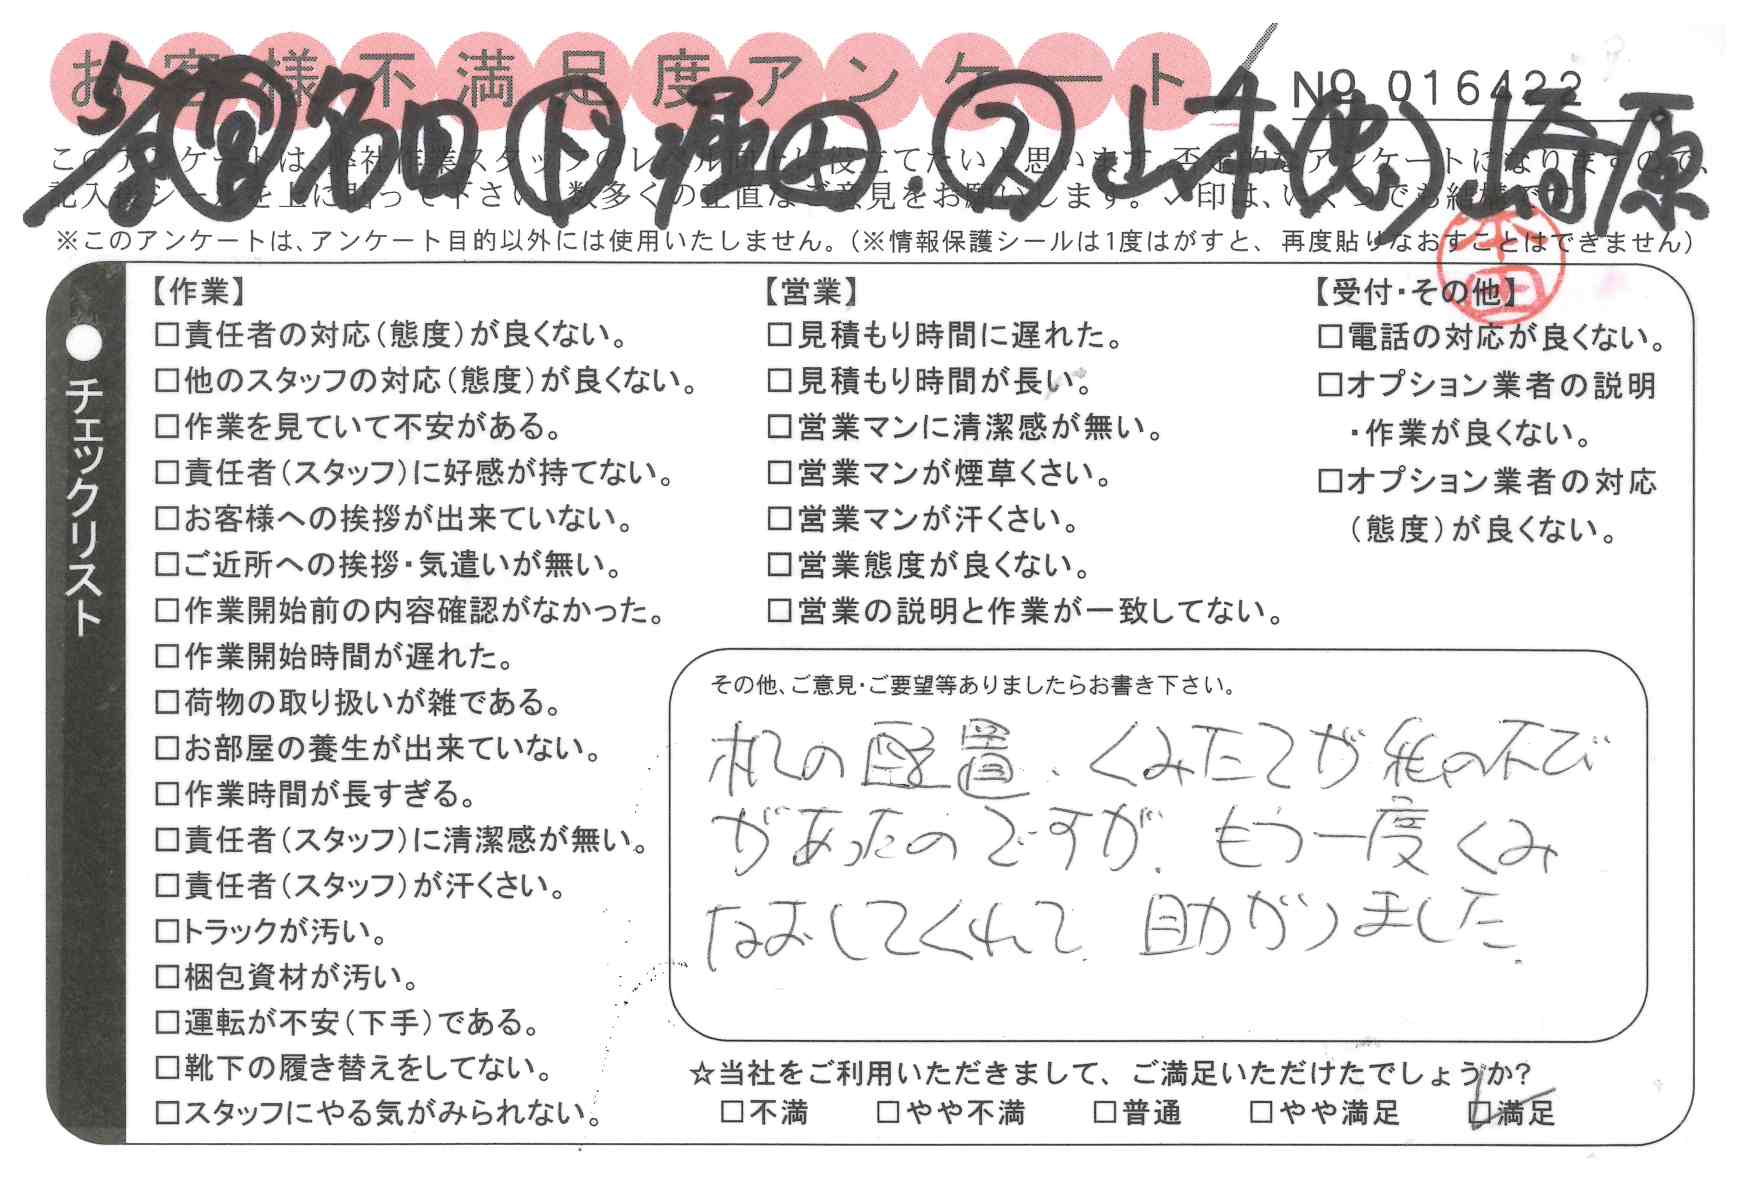 お客様不満足度アンケート
No 016422
このアンケートは、弊社作業スタッフのレベル向上に役立てたいと思います。否定的なアンケートになりますので、
記入後シールを上に貼って下さい。数多くの正直なご意見をお願いします。✓印は、いくつでも結構です。
※このアンケートは、アンケート目的以外には使用いたしません。(※情報保護シールは1度はがすと、再度貼りなおすことはできません)
本田
●チェックリスト
【作業】
□責任者の対応(態度)が良くない。
□他のスタッフの対応(態度)が良くない。
□作業を見ていて不安がある。
□責任者(スタッフ)に好感が持てない。
□お客様への挨拶が出来ていない。
□ご近所への挨拶・気遣いが無い。
□作業開始前の内容確認がなかった。
□作業開始時間が遅れた。
□荷物の取り扱いが雑である。
□お部屋の養生が出来ていない。
□作業時間が長すぎる。
□責任者(スタッフ)に清潔感が無い。
□責任者(スタッフ)が汗くさい。
□トラックが汚い。
□梱包資材が汚い。
□運転が不安(下手)である。
□靴下の履き替えをしてない。
□スタッフにやる気がみられない。
【営業】
□見積もり時間に遅れた。
□見積もり時間が長い。
□営業マンに清潔感が無い。
□営業マンが煙草くさい。
□営業マンが汗くさい。
□営業態度が良くない。
□営業の説明と作業が一致してない。
【受付・その他】
□電話の対応が良くない。
□オプション業者の説明
・作業が良くない。
□オプション業者の対応
(態度)が良くない。
その他、ご意見・ご要望等ありましたらお書き下さい。
机の配置、くみたてが私の不び
があったのですが、もう一度くみ
なおしてくれて、助かりました。
☆当社をご利用いただきまして、ご満足いただけたでしょうか?
□不満 □やや不満 □普通 □やや満足 ☑満足